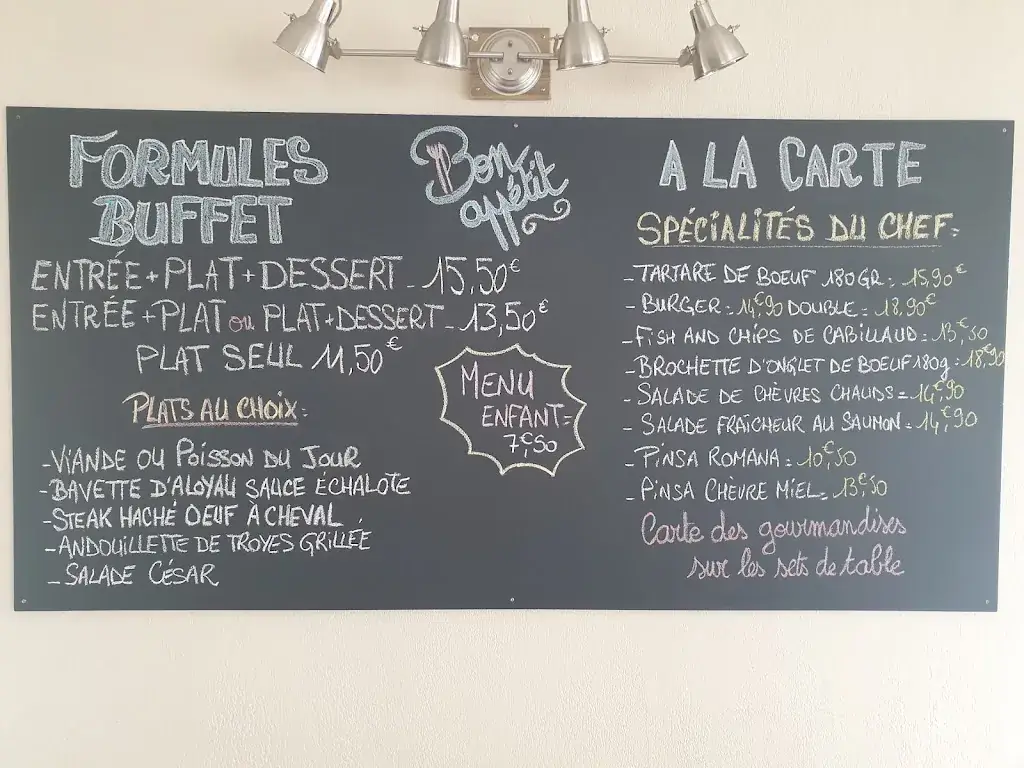 FORMULES
BUFFET
ENTRÉE+PLAT+DESSERT - 15,50€
ENTRÉE+PLAT ou PLAT+DESSERT - 13,50€
PLAT SEUL 11,50€
PLATS AU CHOIX:
-VIANDE OU POISSON DU JOUR
-BAVETTE D'ALOYAU SAUCE ECHALOTE
-STEAK HACHÉ OEUF A CHEVAL
-ANDOUILLETTE DE TROYES GRILLÉE
-SALADE CÉSAR
Bon
appétit
MENU
ENFANT=
7€50
A LA CARTE
SPÉCIALITÉS DU CHEF:
-TARTARE DE BOEUF 180GR: 15,90€
-BURGER: 14€90 DOUBLE: 18,90€
-FISH AND CHIPS DE CABILLAUD=13€50
-BROCHETTE D'ONGLET DE BOEUF 180g:18€90
-SALADE DE CHÈVRES CHAUDS=14€90
-SALADE FRAÎCHEUR AU SAUMON=14€90
-PINSA ROMANA: 10€50
-PINSA CHÈVRE MIEL=13€50
Carte des gourmandises
sur les sets de table